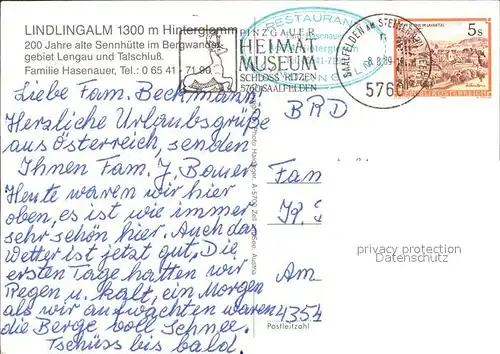 LINDLINGALM 1300 m Hinterglemm
200 Jahre alte Sennhütte im Bergwander-
gebiet Lengau und Talschluß.
Familie Hasenauer, Tel.: 0 65 41 - 71 90
RESTAURANT
PINZGAUER
HEIMAT
MUSEUM
SCHLOSS RITZEN
5760 SAALFELDEN
SAALFELDEN AM STEINERNEN
8.8.89
5760
5s
Liebe Fam. Beckmann
Herzliche Urlaubsgrüße
aus Österreich, senden
Ihnen Fam. J. Bauer
Heute waren wir hier
oben, es ist wie immer
sehr schön hier. Auch das
Wetter ist jetzt gut. Die
ersten Tage hatten wir
Regen u. kalt, ein Morgen
als wir aufwachten waren
die Berge voll Schnee.
Tschüss bis bald.
BRD
Fam
Am
4354
Postleitzahl
privacy protection
Datenschutz